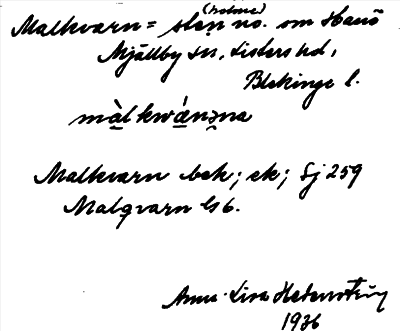 Malkvarn = sten (holme) no. om Hanö
Mjällby sn, Listers hd,
Blekinge l.
màlkwá̱nə̱na
Malkvarn bek; ek; Sj 259
Malqvarn GS 6.
Anna-Lisa
1936